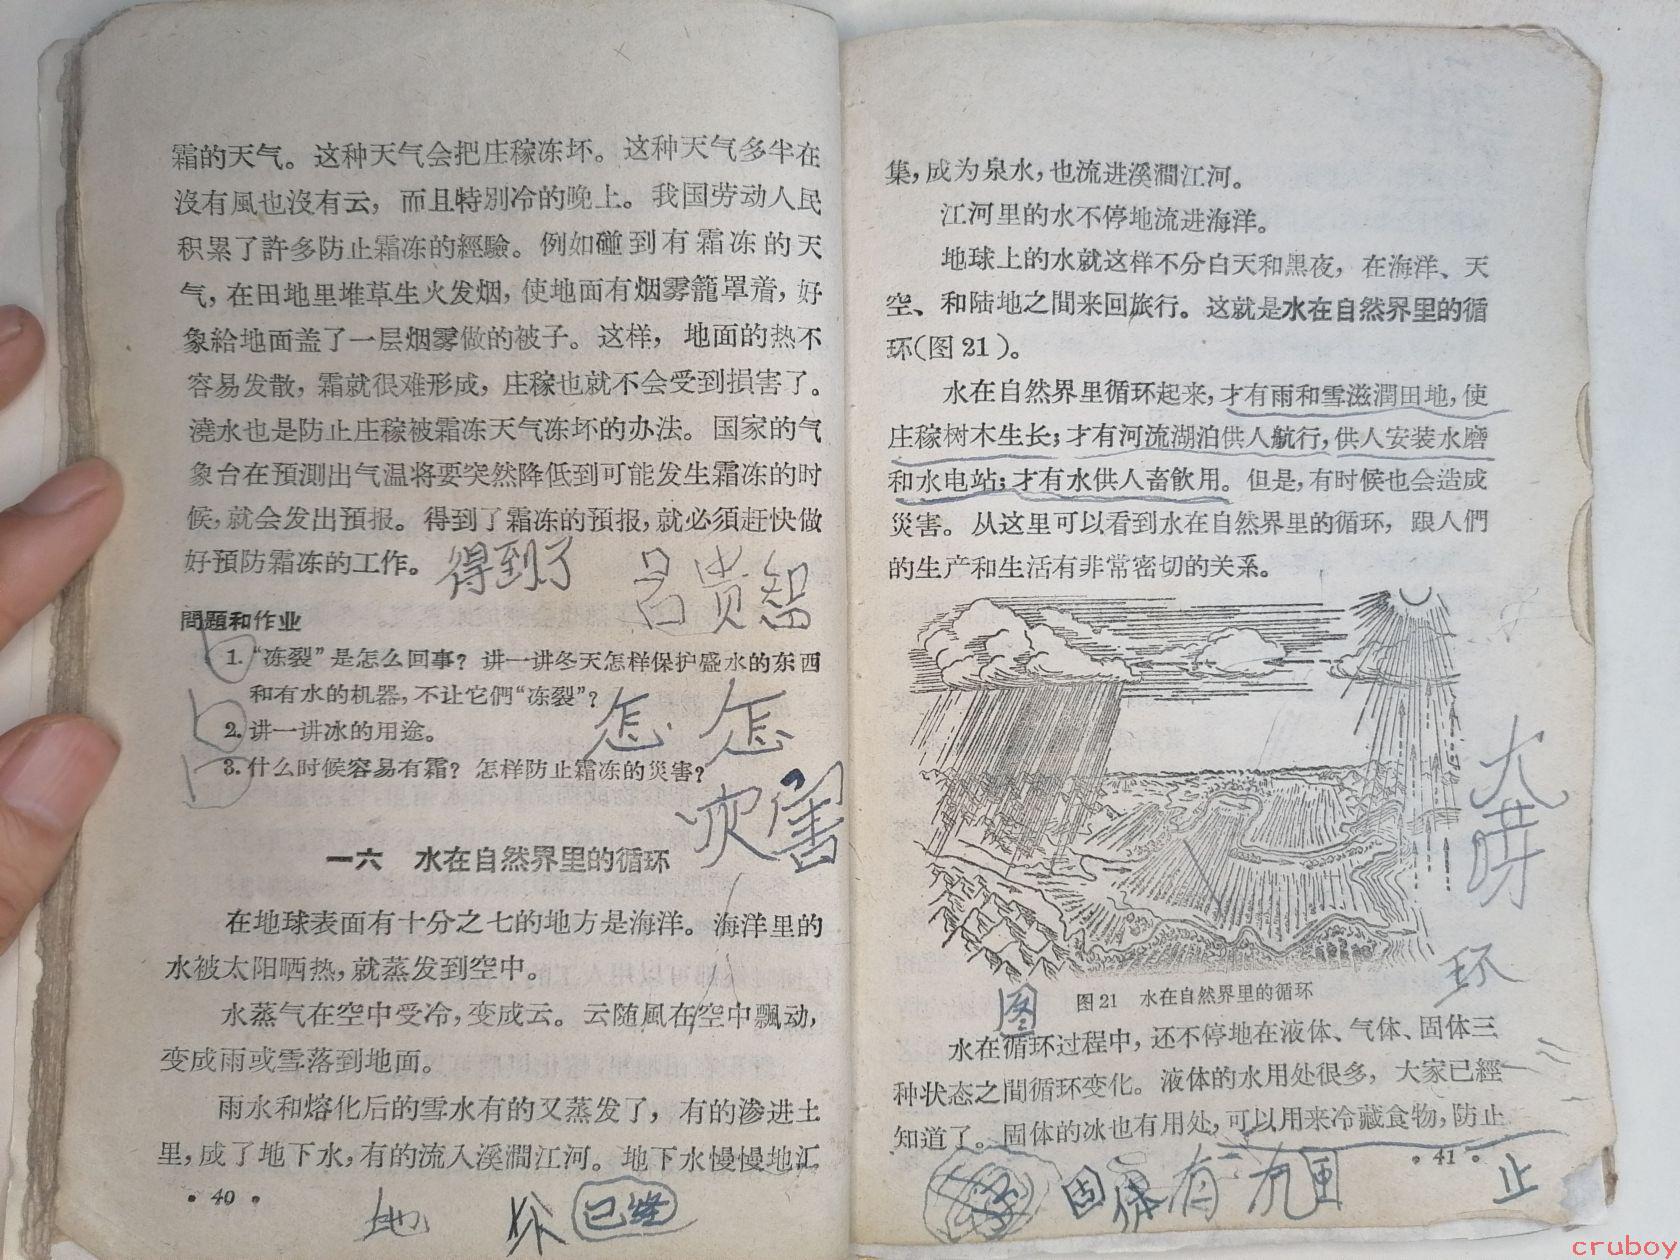 霜的天气。这种天气会把庄稼冻坏。这种天气多半在
沒有風也沒有云，而且特別冷的晚上。我国劳动人民
积累了許多防止霜冻的經驗。例如碰到有霜冻的天
气，在田地里堆草生火发烟，使地面有烟雾籠罩着，好
象給地面盖了一层烟雾做的被子。这样，地面的热不
容易发散，霜就很难形成，庄稼也就不会受到損害了。
澆水也是防止庄稼被霜冻天气冻坏的办法。国家的气
象台在預測出气温将要突然降低到可能发生霜冻的时
候，就会发出預报。得到了霜冻的預报，就必須赶快做
好預防霜冻的工作。
得到了
吕贵智
問題和作业
1. “冻裂”是怎么回事？讲一讲冬天怎样保护盛水的东西
和有水的机器，不让它們“冻裂”？
2. 讲一讲冰的用途。
怎 怎
3. 什么时候容易有霜？怎样防止霜冻的災害？
灾害
一六 水在自然界里的循环
在地球表面有十分之七的地方是海洋。海洋里的
水被太阳晒热，就蒸发到空中。
水蒸气在空中受冷，变成云。云随風在空中飄动，
变成雨或雪落到地面。
雨水和熔化后的雪水有的又蒸发了，有的渗进土
里，成了地下水，有的流入溪澗江河。地下水慢慢地汇
• 40 •
地
已经
集，成为泉水，也流进溪澗江河。
江河里的水不停地流进海洋。
地球上的水就这样不分白天和黑夜，在海洋、天
空、和陆地之間来回旅行。这就是水在自然界里的循
环（图 21）。
水在自然界里循环起来，才有雨和雪滋潤田地，使
庄稼树木生长；才有河流湖泊供人航行，供人安装水磨
和水电站；才有水供人畜飲用。但是，有时候也会造成
災害。从这里可以看到水在自然界里的循环，跟人們
的生产和生活有非常密切的关系。
环
图
图 21 水在自然界里的循环
水在循环过程中，还不停地在液体、气体、固体三
种状态之間循环变化。液体的水用处很多，大家已經
知道了。固体的冰也有用处，可以用来冷藏食物，防止
• 41 •
固体有
止
cruboy